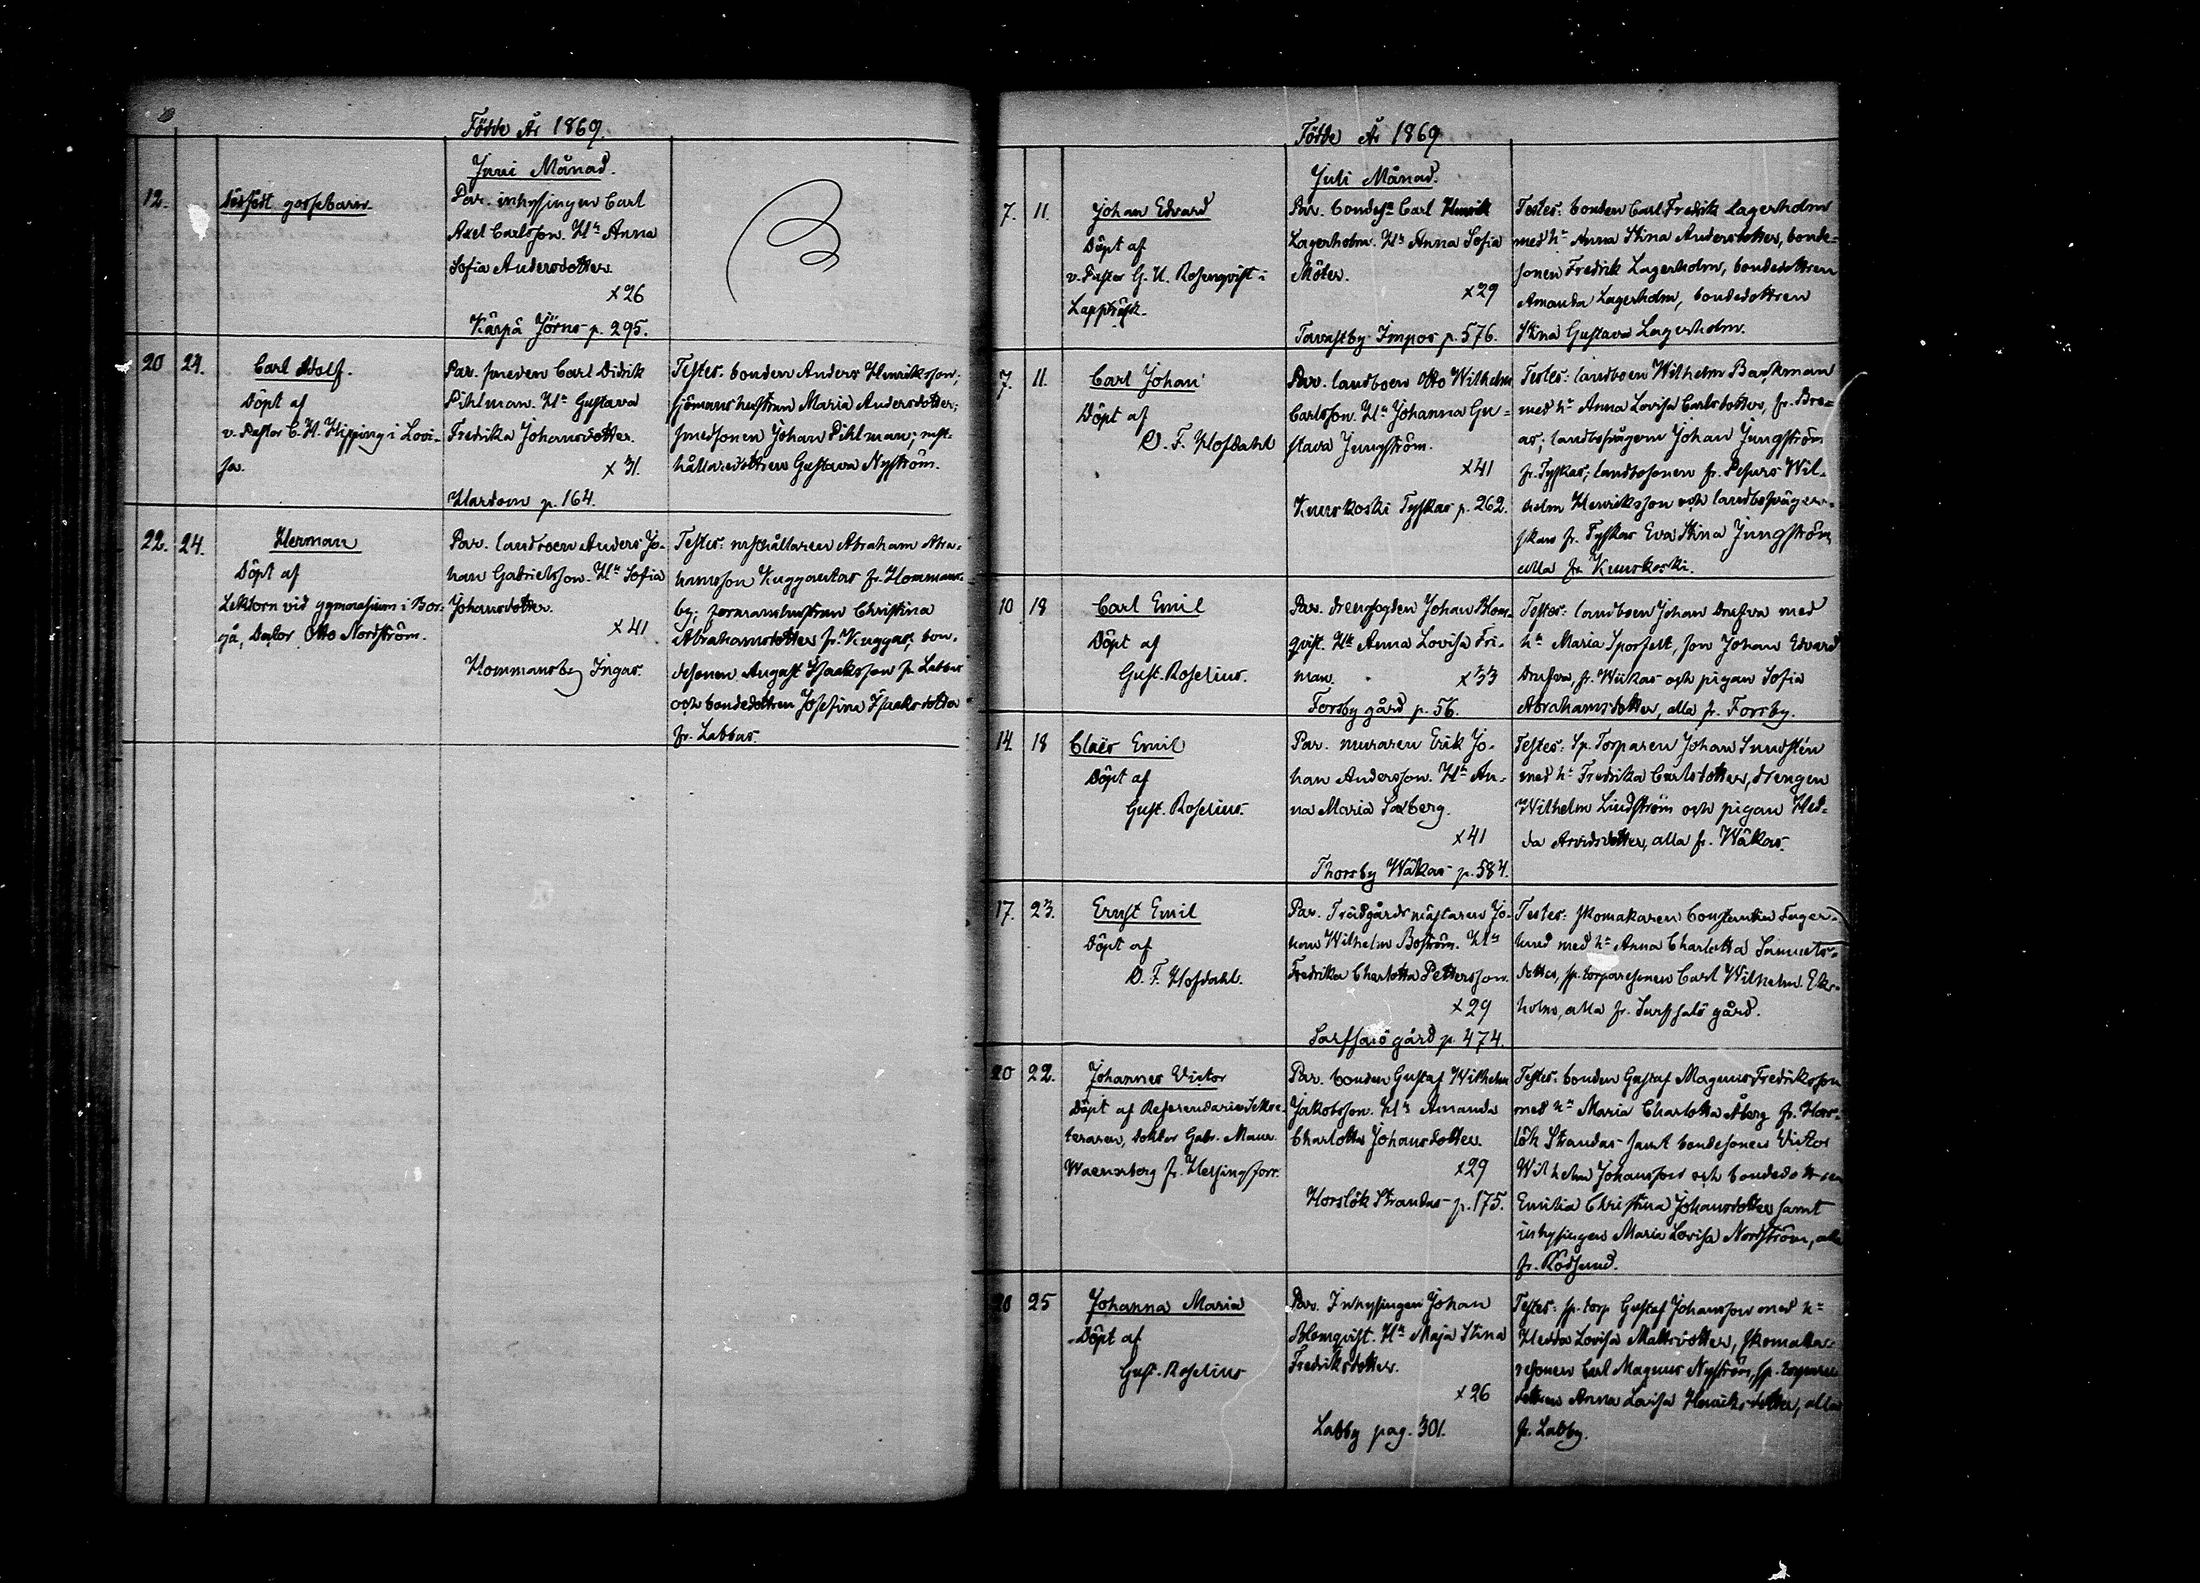 Födde År 1869.
Juni Månad.
12.
Dödfödt gossebarn.
Par. inhysingen Carl
Axel Carlsson. H:u Anna
Sofia Andersdotter.
×26
Kärpä Jörns p. 295.
20 24.
Carl Adolf.
Döpt af
v. Pastor C. H. Hipping i Lovi-
sa.
Par. smeden Carl Didrik
Pihlman. H:u Gustava
Fredrika Johansdotter.
×31.
Hardom p. 164.
Testes: bonden Anders Henriksson;
sjömanshustrun Maria Andersdotter;
smedsonen Johan Pihlman;
hållaredottren Gustava Nyström.
22. 24.
Herman
Döpt af
Lektorn vid gymnasium i Bor-
gå, Doctor Otto Nordström.
Par. landboen Anders Jo-
han Gabrielsson. H:u Sofia
Johansdotter.
×41
Hommansby Ingas.
Testes: Abraham Abra-
hamsson Kuggantas fr. Hommans-
by; Christina
Abrahamsdotter fr. Kuggas; bon-
desonen August Isaksson fr. Labbas
och bondedottren Josefina Isaksdotter
fr. Labbas.
Födde År 1869
Juli Månad.
7. 11.
Johan Edvard
Döpt af
v. Pastor G. U. Rosenqvist i
Lappträsk.
Par. bondes:n Carl Henrik
Lagerholm. H:u Anna Sofia
Möter.
×29
Tavastby Impos p. 576.
Testes: bonden Carl Fredrik Lagerholm
med h:u Anna Stina Andersdotter, bonde-
sonen Fredrik Lagerholm, bondedottren
Amanda Lagerholm, bondedottren
Stina Gustava Lagerholm.
7. 11.
Carl Johan
Döpt af
D. F. Hofdahl
Par. landboen Otto Wilhelm
Carlsson. H:u Johanna Gu-
stava Jungström.
×41
Kuuskoski Tyskas p. 262.
Testes: landboen Wilhelm Backman
med h:u Anna Lovisa Carlsdotter, fr. Bre-
as; landbodrängen Johan Jungström
fr. Tyskas; landbosonen fr. Pesurs Wil-
helm Henriksson och
fr. Tyskas Eva Stina Jungström
alla fr. Kuuskoski.
10 18
Carl Emil
Döpt af
Gust. Roselius.
Par. drengfogden Johan Blom-
qvist. H:u Anna Lovisa Fri-
man.
×33
Forsby gård p. 56.
Testes: landboen Johan Drufva med
h:u Maria Sporfelt, son Johan Edvard
Drufva, fr. Wäkas och pigan Sofia
Abrahamsdotter, alla fr. Forsby.
14. 18
Claës Emil
Döpt af
Gust. Roselius.
Par. muraren Erik Jo-
han Andersson. H:u An-
na Maria Saxberg.
×41
Thorsby Wäkas p. 584.
Testes: Sp. Torparen Johan Sundstén
med h:u Fredrika Carlsdotter, drengen
Wilhelm Lindström och pigan Hed-
da Arvidsdotter, alla fr. Wäkas.
17. 23.
Ernst Emil
Döpt af
D. F. Hofdahl.
Par. Trädgårdsmästaren Jo-
han Wilhelm Boström. H:u
Fredrika Charlotta Pettersson.
×29
Sarfsalö gård p. 474.
Testes: skomakaren Constantin Fager-
lund med h:u Anna Charlotta Samuels-
dotter, sp. torparesonen Carl Wilhelm Ek-
holm, alla fr. Sarfsalö gård.
20 22.
Johannes Victor
Döpt af Referendarie Sekre-
teraren, Doktor Gabr. Maur.
Waenerberg fr. Helsingfors.
Par. bonden Gustaf Wilhelm
Jakobsson. H:u Amanda
Charlotta Johansdotter.
×29
Horslök Strandas p. 175.
Testes: bonden Gustaf Magnus Fredriksson
med h:u Maria Charlotta Åberg fr. Hors-
lök Strandas samt bondesonen Victor
Wilhelm Johansson och bondedottren
Emilia Christina Johansdotter samt
inhysingen Maria Lovisa Nordström, alla
fr. Rödsund.
20 25
Johanna Maria
Döpt af
Gust. Roselius
Par. Inhysingen Johan
Blomqvist. H:u Maja Stina
Fredriksdotter.
×26
Labby pag. 301.
Testes: sp. torp Gustaf Johansson med h:u
Hedda Lovisa Mattsdotter, skomaka-
resonen Carl Magnus Nyström, sp. torpare
dottren Anna Lovisa Henriksdotter, alla
fr. Labby.